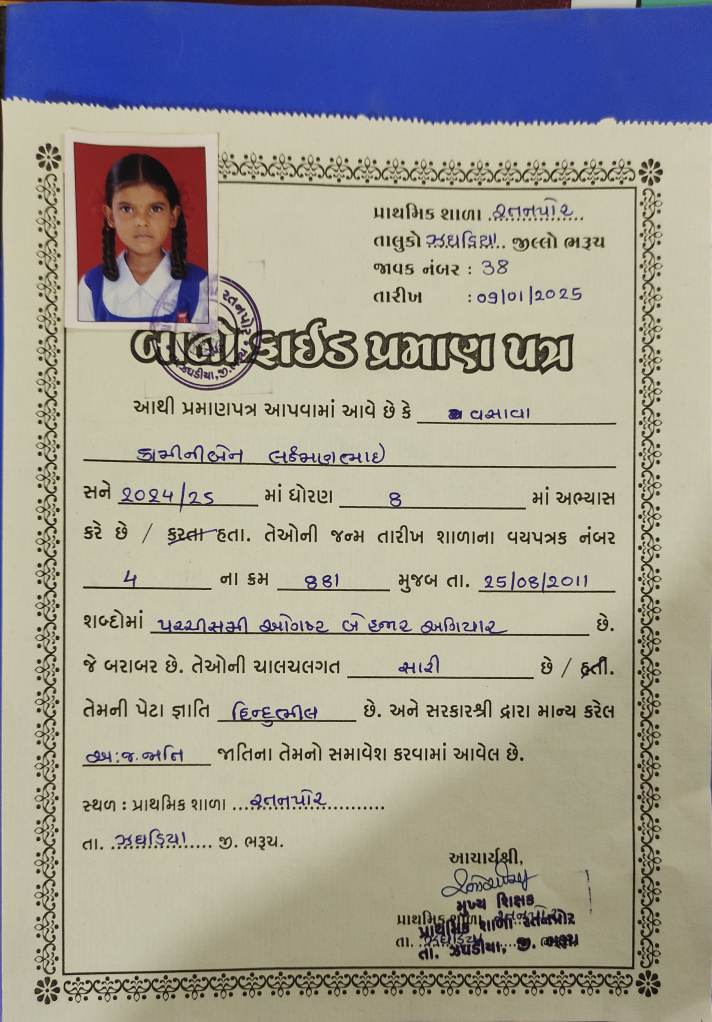 પ્રાથમિક શાળા રતનપોર
તાલુકો ઝઘડિયા.. જીલ્લો ભરૂચ
જાવક નંબર : 38
તારીખ : 09/01/2025
બોનોફાઈડ પ્રમાણ પત્ર
આથી પ્રમાણપત્ર આપવામાં આવે છે કે વસાવા
કામીનીબેન લક્ષ્મણભાઈ
સને 2024/25 માં ધોરણ 8 માં અભ્યાસ
કરે છે / કરતા હતા. તેઓની જન્મ તારીખ શાળાના વયપત્રક નંબર
4 ના ક્રમ 881 મુજબ તા. 25/08/2011
શબ્દોમાં પચ્ચીસમી ઓગષ્ટ બે હજાર અગિયાર છે.
જે બરાબર છે. તેઓની ચાલચલગત સારી છે / હતી.
તેમની પેટા જ્ઞાતિ હિન્દુભીલ છે. અને સરકારશ્રી દ્વારા માન્ય કરેલ
અ.જ.જાતિ જાતિના તેમનો સમાવેશ કરવામાં આવેલ છે.
સ્થળ : પ્રાથમિક શાળા ...રતનપોર...
તા. ઝઘડિયા.... જી. ભરૂચ.
આચાર્યશ્રી,
મુખ્ય શિક્ષક
પ્રાથમિક શાળા રતનપોર
પ્રાથમિક શાળા રતનપોર
તા. ઝઘડિયા
તા. ઝઘડીયા, જી. ભરૂચ